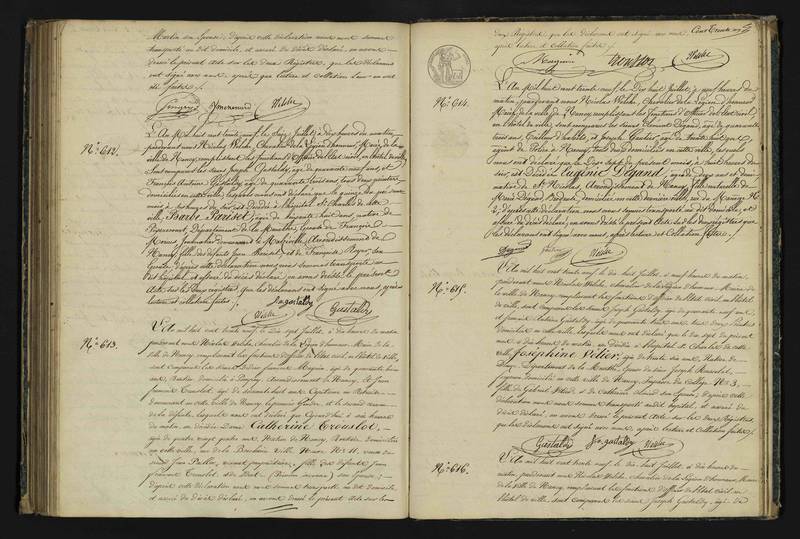 Martin son Epouse; d'après cette déclaration nous nous sommes
transporté au dit domicile, et assuré du décès déclaré, en avons
dressé le présent acte sur les deux Registres, que les déclarans
ont signé avec nous, après que lecture et collation leur en ont
été faites ./.
Welche
N.º 612.
L'An Mil huit cent trente neuf, le Seize Juillet, à dix heures du matin,
pardevant nous Nicolas Welche, Chevalier de la Légion d'honneur, Maire de la
ville de Nancy remplissant les fonctions d'Officier de l'état civil, en l'hôtel de ville,
sont comparus les sieurs Joseph Gastaldy, âgé de quarante neuf ans, et
François Antoine Gastaldy, âgé de quarante trois ans, tous deux
domiciliés en cette ville, lesquels nous ont déclaré que le quinze du présent
mois, à heures du soir est décédée à l'hôpital St Charles de cette
ville, Barbe Parisot, âgée de cinquante huit ans, native de
Département de la Meurthe, Epouse de François
demeurant à Malzéville, Arrondissement de
Nancy, fille des défunts Jean Parisot, et de Françoise Royer, son
Epouse; d'après cette déclaration nous nous sommes transporté au
dit hôpital, et assuré du décès déclaré, en avons dressé le présent
Acte sur les deux registres, que les déclarans ont signé avec nous, après
lecture et collation faites ./.
Welche fr. a. gastaldy Gastaldy
N.º 613.
L'An mil huit cent trente neuf, le dix sept Juillet, à dix heures du matin
pardevant nous Nicolas Welche, chevalier de la Légion d'honneur, Maire de la
ville de Nancy, remplissant les fonctions d'officier de l'état civil, en l'hôtel de ville,
sont comparus les sieurs Didier François Mougin, âgé de quarante
ans, Rentier domicilié à Arrondissement de Nancy, et Jean
François Trouslot, âgé de soixante huit ans, Capitaine en Retraite
demeurant en cette ville de Nancy, le premier Gendre, et le second
de la défunte, lesquels nous ont déclaré que aujourd'hui à six heures
du matin, est décédée Dame Catherine Trouslot,
âgée de quatre vingt quatre ans, Native de Nancy, Rentière domiciliée
en cette ville, rue de la Boucherie Ville Neuve N.º 11, veuve du
sieur Jean vivant propriétaire, fille des défunts Jean
François Trouslot, et de son Epouse;
d'après cette déclaration nous nous sommes transporté au dit domicile,
et assuré du décès déclaré, en avons dressé le présent Acte sur les
deux Registres, que les déclarans ont signé avec nous, Cent Trente neuf
après lecture et collation faites ./.
Mougin Trouslot Welche
N.º 614.
L'An Mil huit cent trente neuf, le Dix huit Juillet, à neuf heures du
matin, pardevant nous Nicolas Welche, Chevalier de la Légion d'honneur
Maire de la ville de Nancy, remplissant les fonctions d'Officier de l'état civil,
en l'hôtel de ville, sont comparus les sieurs Dégand, âgé de quarante
trois ans, Tailleur d'habits, et Joseph âgé de trente ans,
agent de Police à Nancy, tous deux domiciliés en cette ville, lesquels
nous ont déclaré que le Dix sept du présent mois, à huit heures du
soir, est Décédée Eugénie Dégand, âgée de deux ans et demi
native de St Nicolas, Arrondissement de Nancy, fille naturelle de
Marie Dégand, domiciliée en cette dernière ville, rue du Manège N.º
2; d'après cette déclaration, nous nous sommes transporté au dit domicile, et
assuré du décès déclaré, en avons dressé le présent acte sur les deux registres que
les déclarans ont signé avec nous, après lecture et Collation faites ./.
Dégand Welche
N.º 615.
L'An mil huit cent trente neuf, le dix huit Juillet, à neuf heures du matin,
pardevant nous Nicolas Welche, chevalier de la Légion d'honneur, Maire de
la ville de Nancy, remplissant les fonctions d'officier de l'état civil, en l'hôtel
de ville, sont comparus les sieurs Joseph Gastaldy, âgé de quarante neuf ans,
et François Antoine Gastaldy, âgé de quarante trois ans, tous deux
domiciliés en cette ville, lesquels nous ont déclaré que le dix sept du présent
mois à dix heures du matin, est Décédée à l'hôpital St Charles de cette
ville Joséphine Velter, âgée de trente six ans, Native de
Dieuze, Département de la Meurthe, Epouse du sieur Joseph
domicilié en cette ville de Nancy, Impasse du Collège N.º 3,
fille de et de Catherine son Epouse; d'après cette
déclaration nous nous sommes transporté audit hôpital, et assuré du
décès déclaré, en avons dressé le présent Acte, sur les deux Registres,
que les déclarans ont signé avec nous, après lecture et Collation faites ./.
Gastaldy fr. a. gastaldy Welche
N.º 616.
L'An mil huit cent trente neuf, le dix huit Juillet, à dix heures du
matin, pardevant nous Nicolas Welche, chevalier de la Légion d'honneur, Maire
de la ville de Nancy, remplissant les fonctions d'officier de l'état civil, en
l'hôtel de ville, sont comparus les sieurs Joseph Gastaldy, âgé de